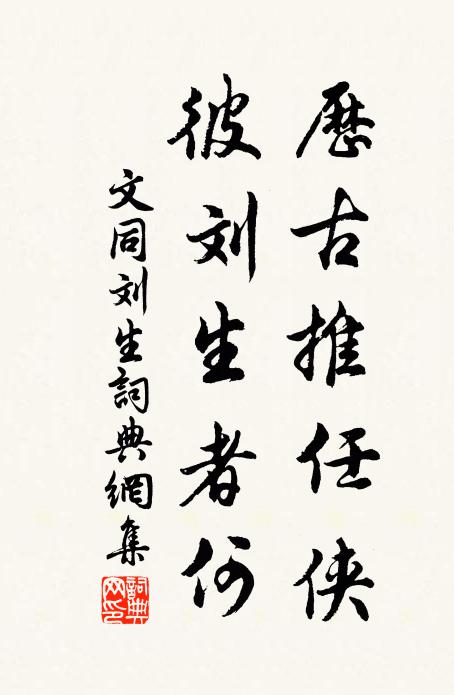 歷古推任俠
彼刘生者何
文同刘生詞典網集
詞典網印